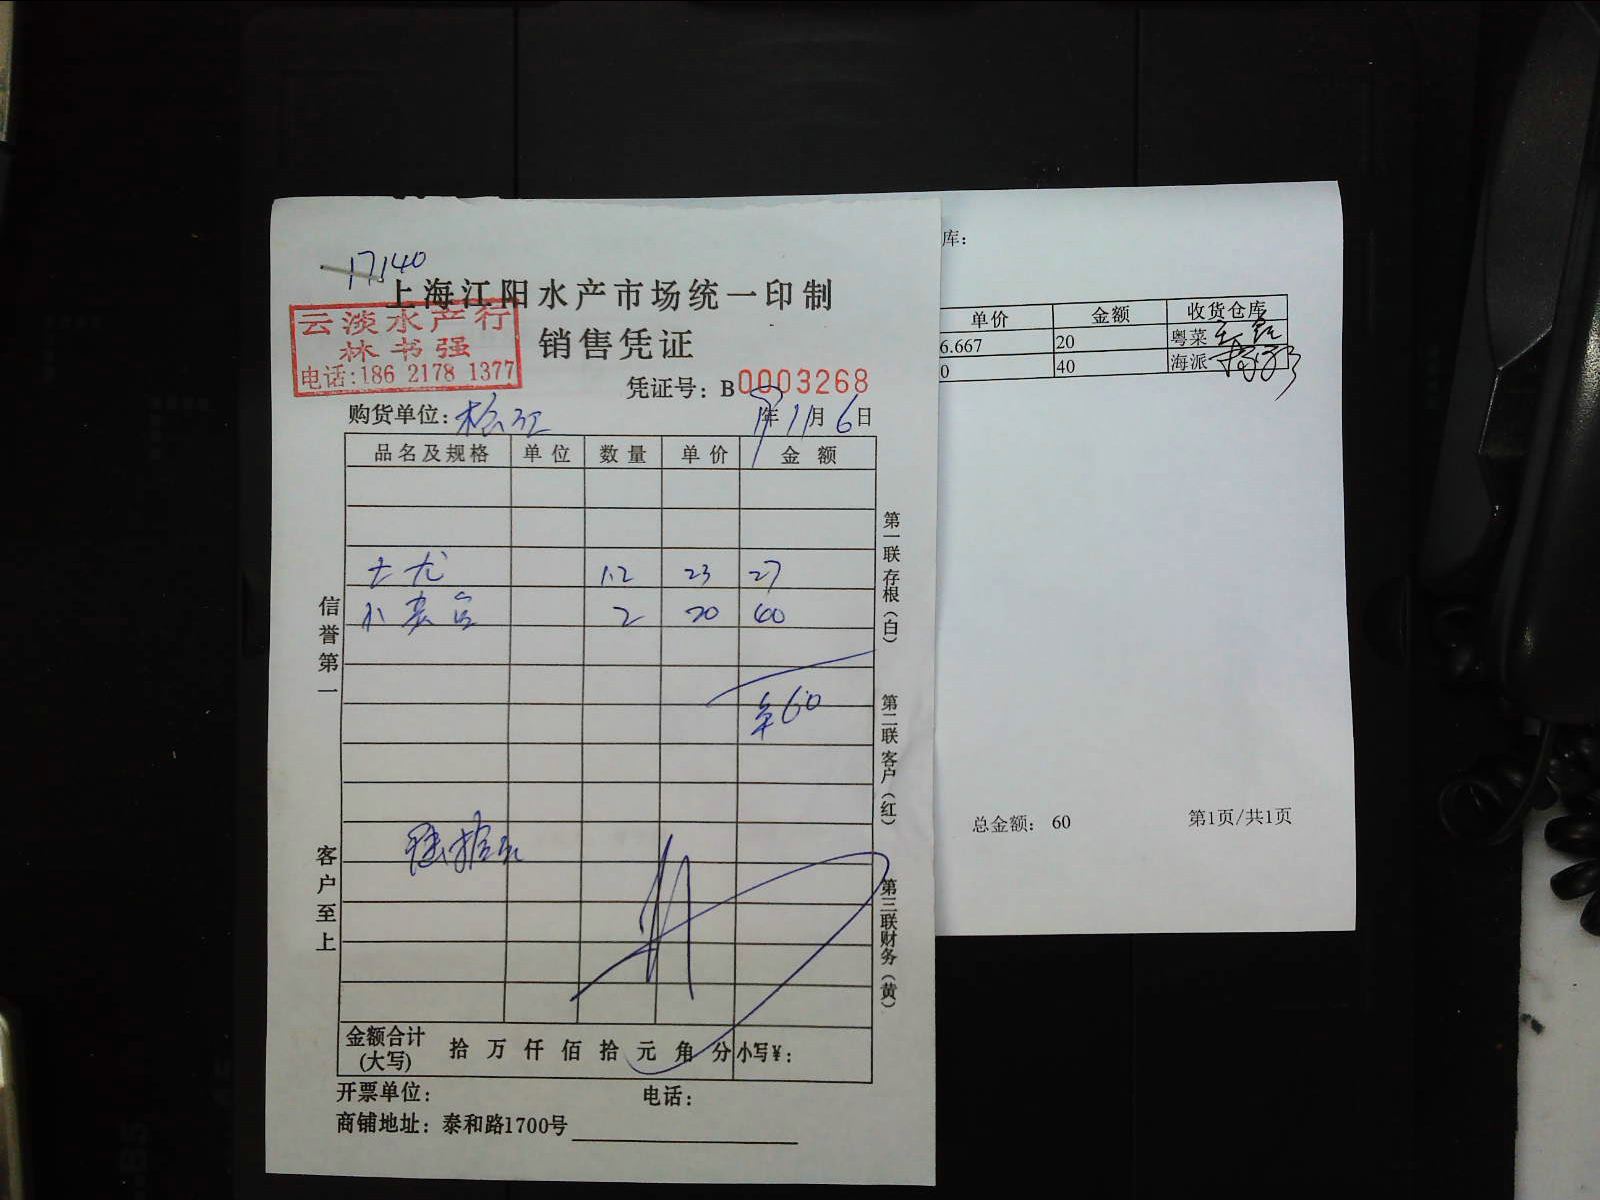 17140
上海江阳水产市场统一印制
云淡水产行
林书强
电话:186 2178 1377
销售凭证
凭证号：B0003268
购货单位：松江 年11月6日
品名及规格 单位 数量 单价 金额
1.2 23 27
小 2 20 40
60
陆拾元
金额合计(大写) 拾 万 仟 佰 拾 元 角 分 小写￥：
开票单位： 电话：
商铺地址：泰和路1700号
信誉第一
客户至上
第一联存根（白）
第二联客户（红）
第三联财务（黄）
库：
单价 金额 收货仓库
6.667 20 粤菜
0 40 海派
总金额： 60 第1页/共1页